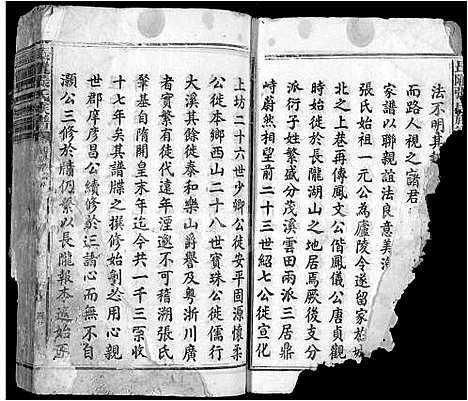 法不明其
而路人視之諸君
家譜以聯親誼法良意美
張氏始祖一元公為廬陵令遂留家於城
北之上巷再傳鳳文公偕鳳儀公唐貞觀
時始徙於長隴湖山之地居焉厥後支分
派衍子姓繁盛分茂溪雲田兩派三居鼎
峙蔚然相望前二十三世紹七公徙宣化
上坊二十六世少卿公徙安平固源懷柔
公徙本鄉西山二十八世寶珠公徙儒行
大溪其餘徙泰和樂山爵譽及粵浙川廣
者實繁有徒代遠年湮邈不可稽溯張氏
肇基自隋開皇末年迄今共一千三百
十七年矣其譜牒之撰修始創之用心親
世郡庠彥昌公續修於三請心而無不自
灝公三修於牖個繁以長隴報本返始